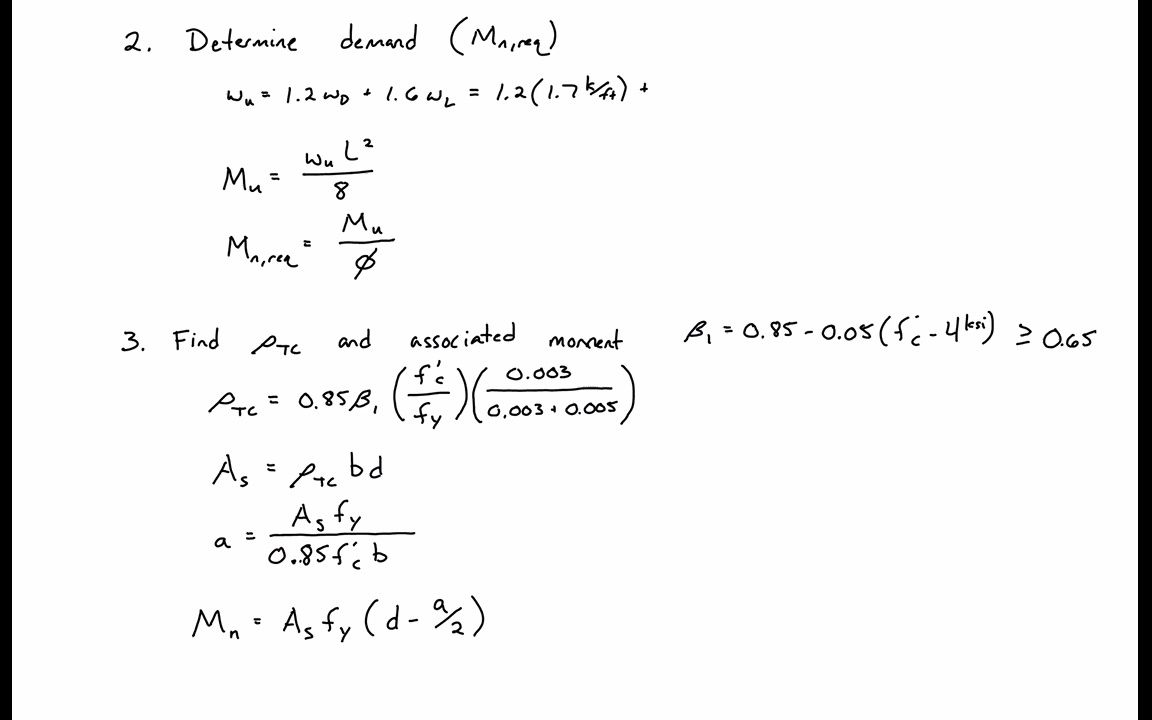 2. Determine demand (Mn,req)
wu = 1.2 wD + 1.6 wL = 1.2(1.7 k/ft) +
Mu = wu L² / 8
Mn,req = Mu / ϕ
3. Find ρTC and associated moment β₁ = 0.85 - 0.05(f'c - 4 ksi) ≥ 0.65
ρTC = 0.85β₁ (f'c / fy)(0.003 / 0.003 + 0.005)
As = ρTC bd
a = As fy / 0.85f'c b
Mn = As fy (d - a/2)